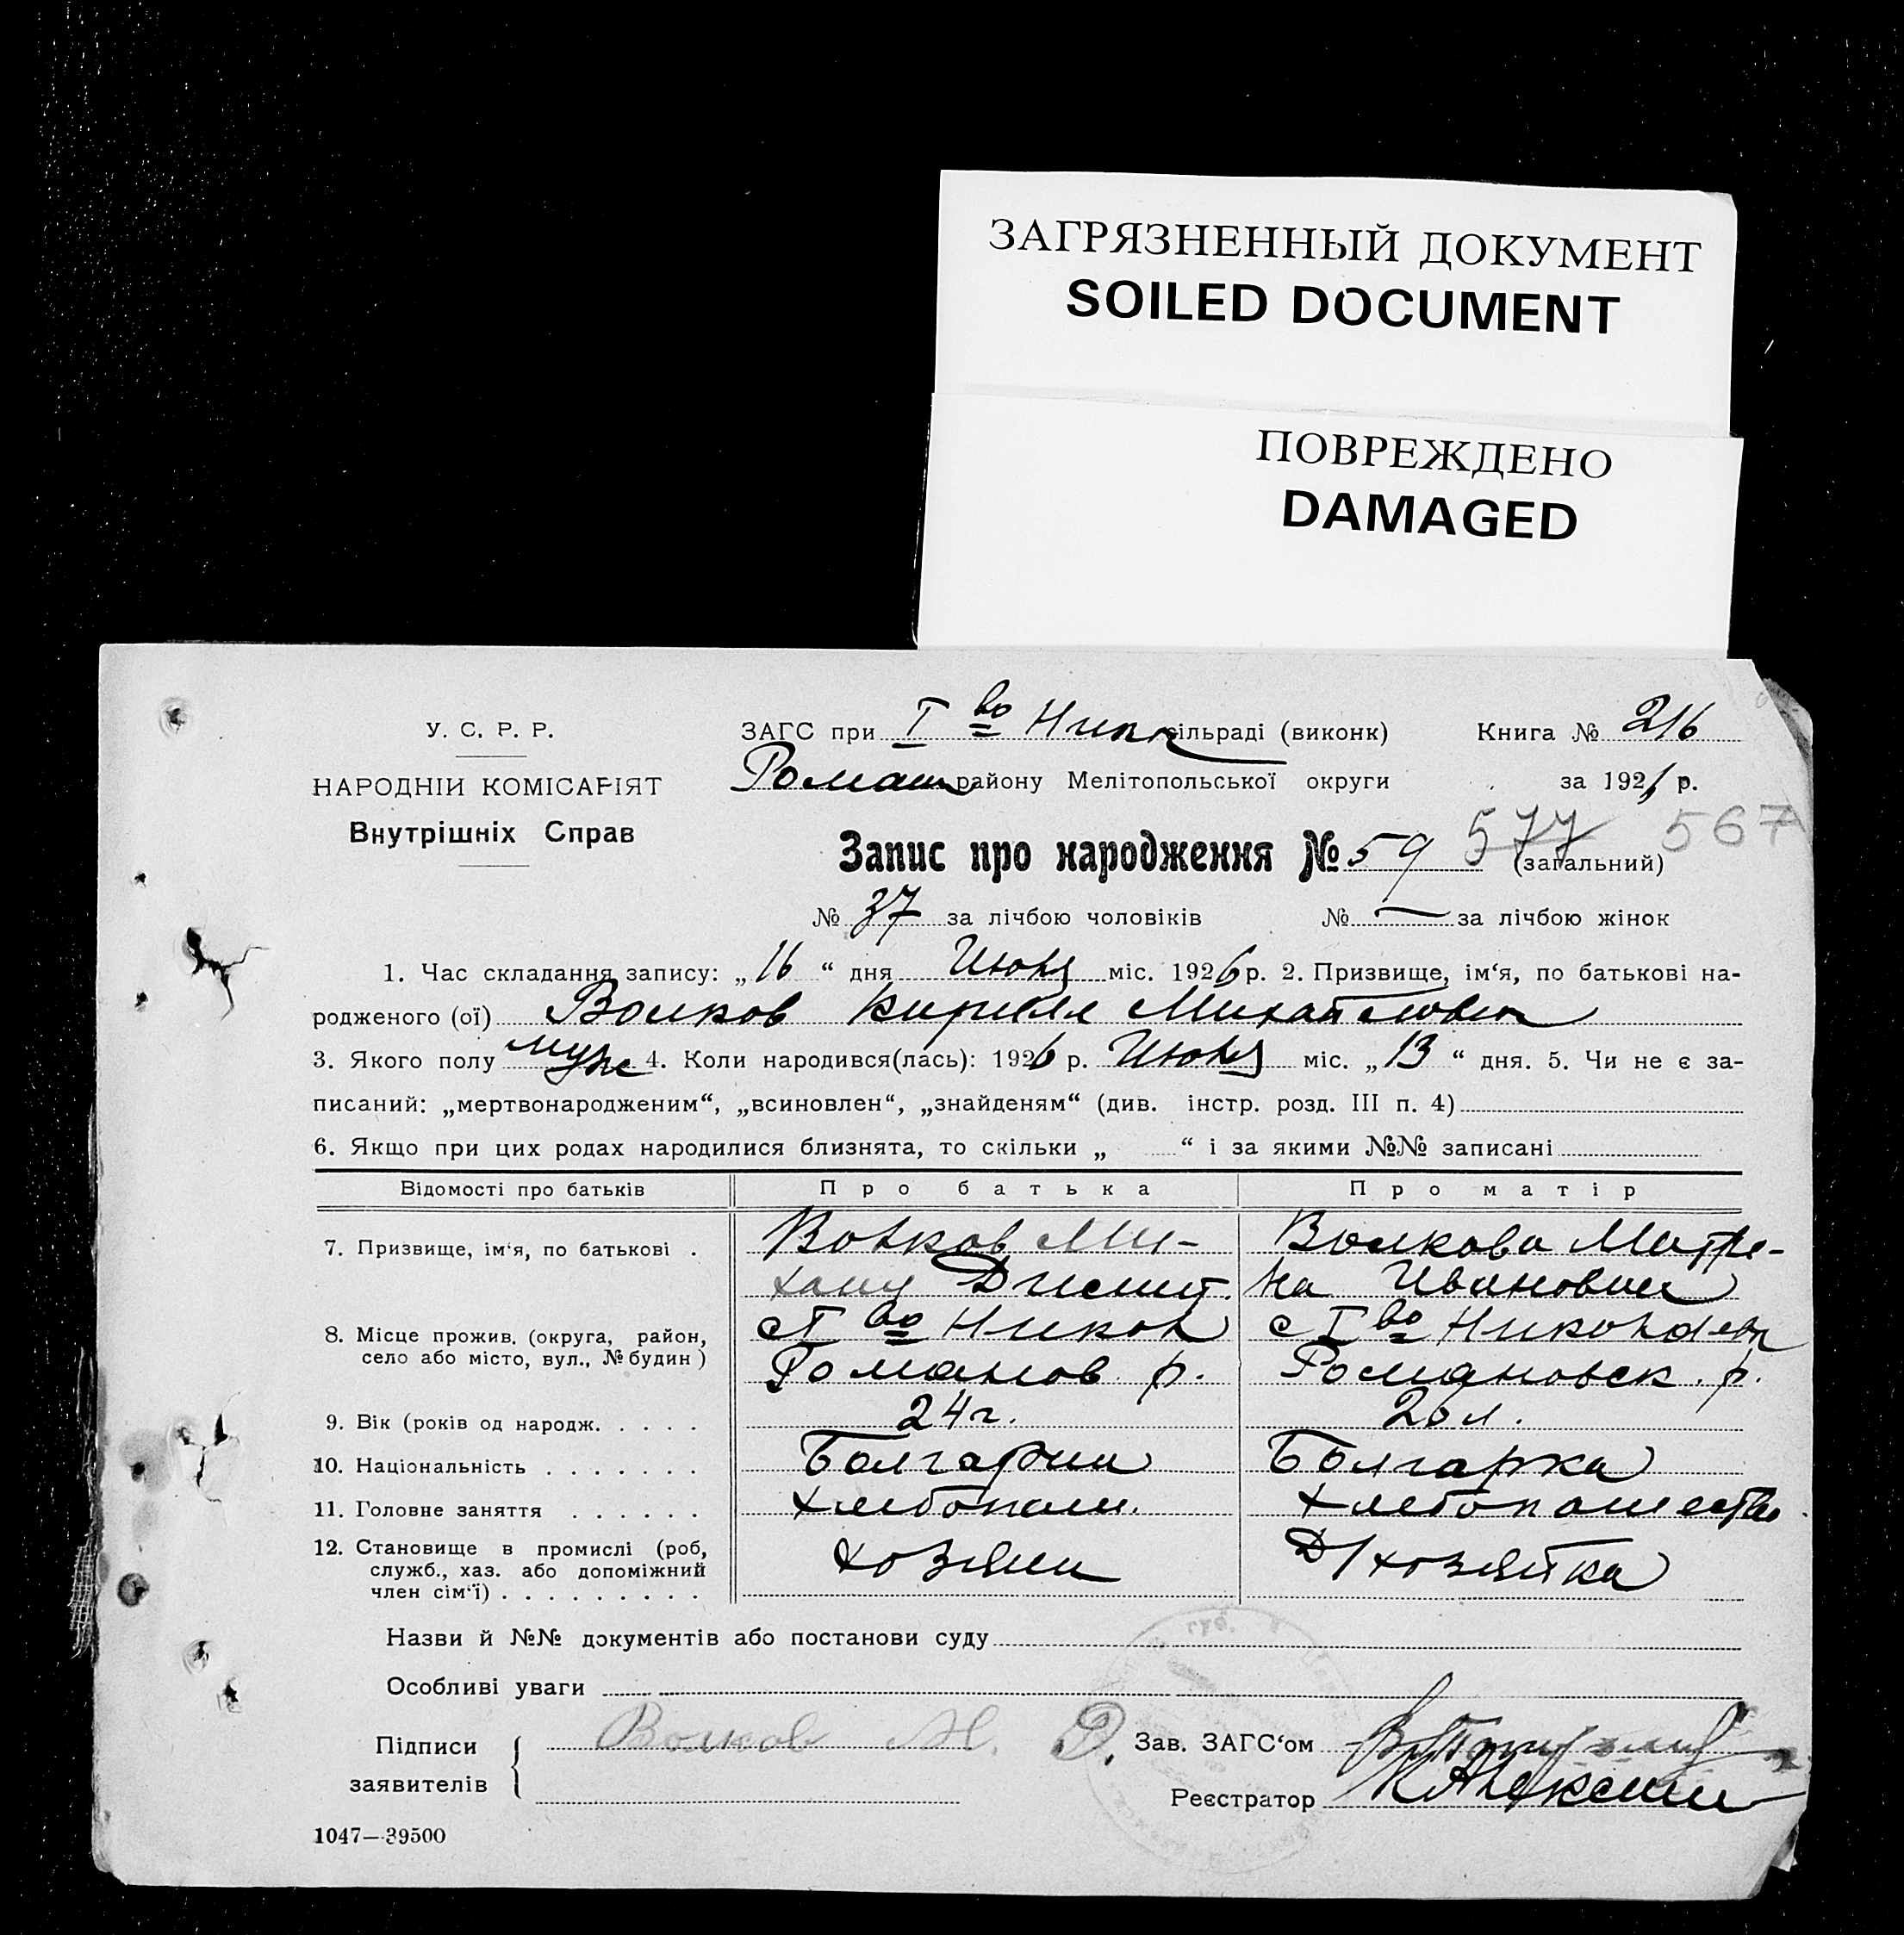 ЗАГРЯЗНЕННЫЙ ДОКУМЕНТ
SOILED DOCUMENT
ПОВРЕЖДЕНО
DAMAGED
У. С. Р. Р.
НАРОДНІЙ КОМІСАРІЯТ
Внутрішніх Справ
ЗАГС при I во Ник сільраді (виконк) Книга № 216
Роман району Мелітопольської округи за 1926 р.
Запис про народження № 59 577 (загальний) 567
№ 37 за лічбою чоловіків № — за лічбою жінок
1. Час складання запису: „16“ дня Июня міс. 1926 р. 2. Призвище, ім‘я, по батькові на-
родженого (ої) Волков Кирилл Михайлович
3. Якого полу муж 4. Коли народився(лась): 1926 р. Июня міс. „13“ дня. 5. Чи не є за-
писаний: „мертвонародженим“, „всиновлен“, „знайденям“ (див. інстр. розд. III п. 4)
6. Якщо при цих родах народилися близнята, то скільки „ “ і за якими №№ записані
Відомості про батьків Про батька Про матір
7. Призвище, ім‘я, по батькові . Волков Ми- Волкова Матре-
хаил Дмит. на Ивановна
8. Місце прожив. (округа, район, с I во Никол с I во Николаев
село або місто, вул., № будин ) Романов р. Романовск. р.
9. Вік (років од народж. . . . . 24 г. 20 л.
10. Національність . . . . . . . Болгарин Болгарка
11. Головне заняття . . . . . . Хлебопаш. Хлебопашество
12. Становище в промислі (роб, хозяин Д/хозяйка
служб., хаз. або допоміжний
член сім‘ї) . . . . . . . . .
Назви й №№ документів або постанови суду
Особливі уваги
Підписи заявителів Волков М. Д.
Зав. ЗАГС‘ом
Реєстратор
1047—39500